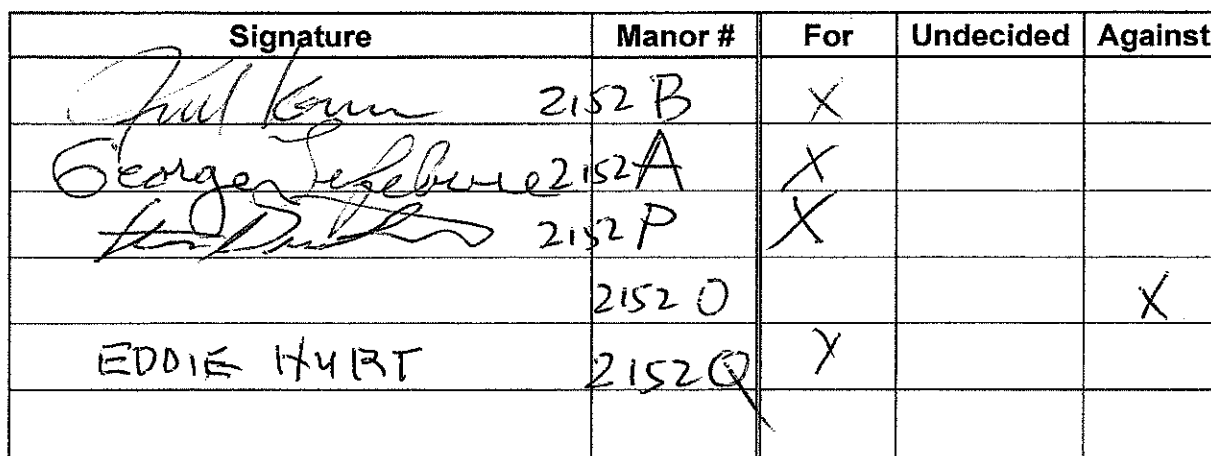 Signature Manor # For Undecided Against
2152 B X
George Lefebvre 2152 A X
2152 P X
2152 O X
EDDIE HURT 2152 Q X